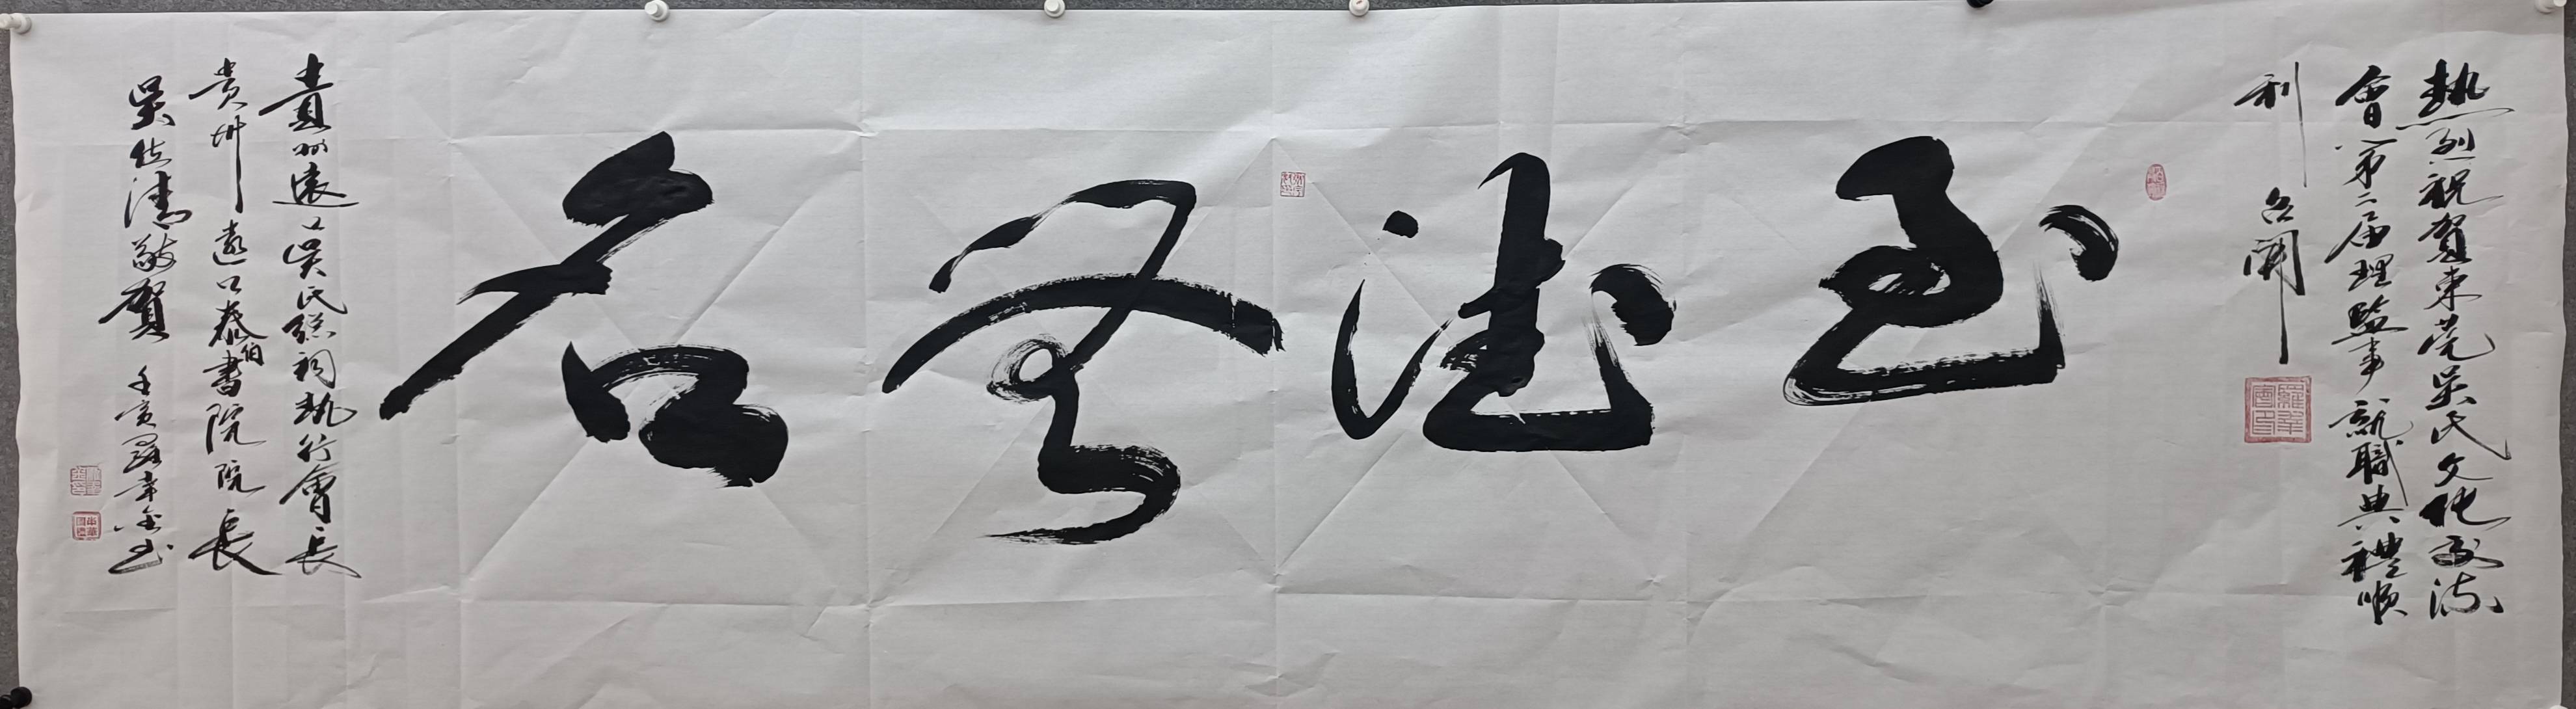 熱烈祝賀東莞吳氏文化交流
會第二届理監事就職典禮順
利召開
至德無名
貴州遠口吳氏總祠執行會長
贵州遠口泰伯書院院長
吳位清敬賀
壬寅羅幸金书